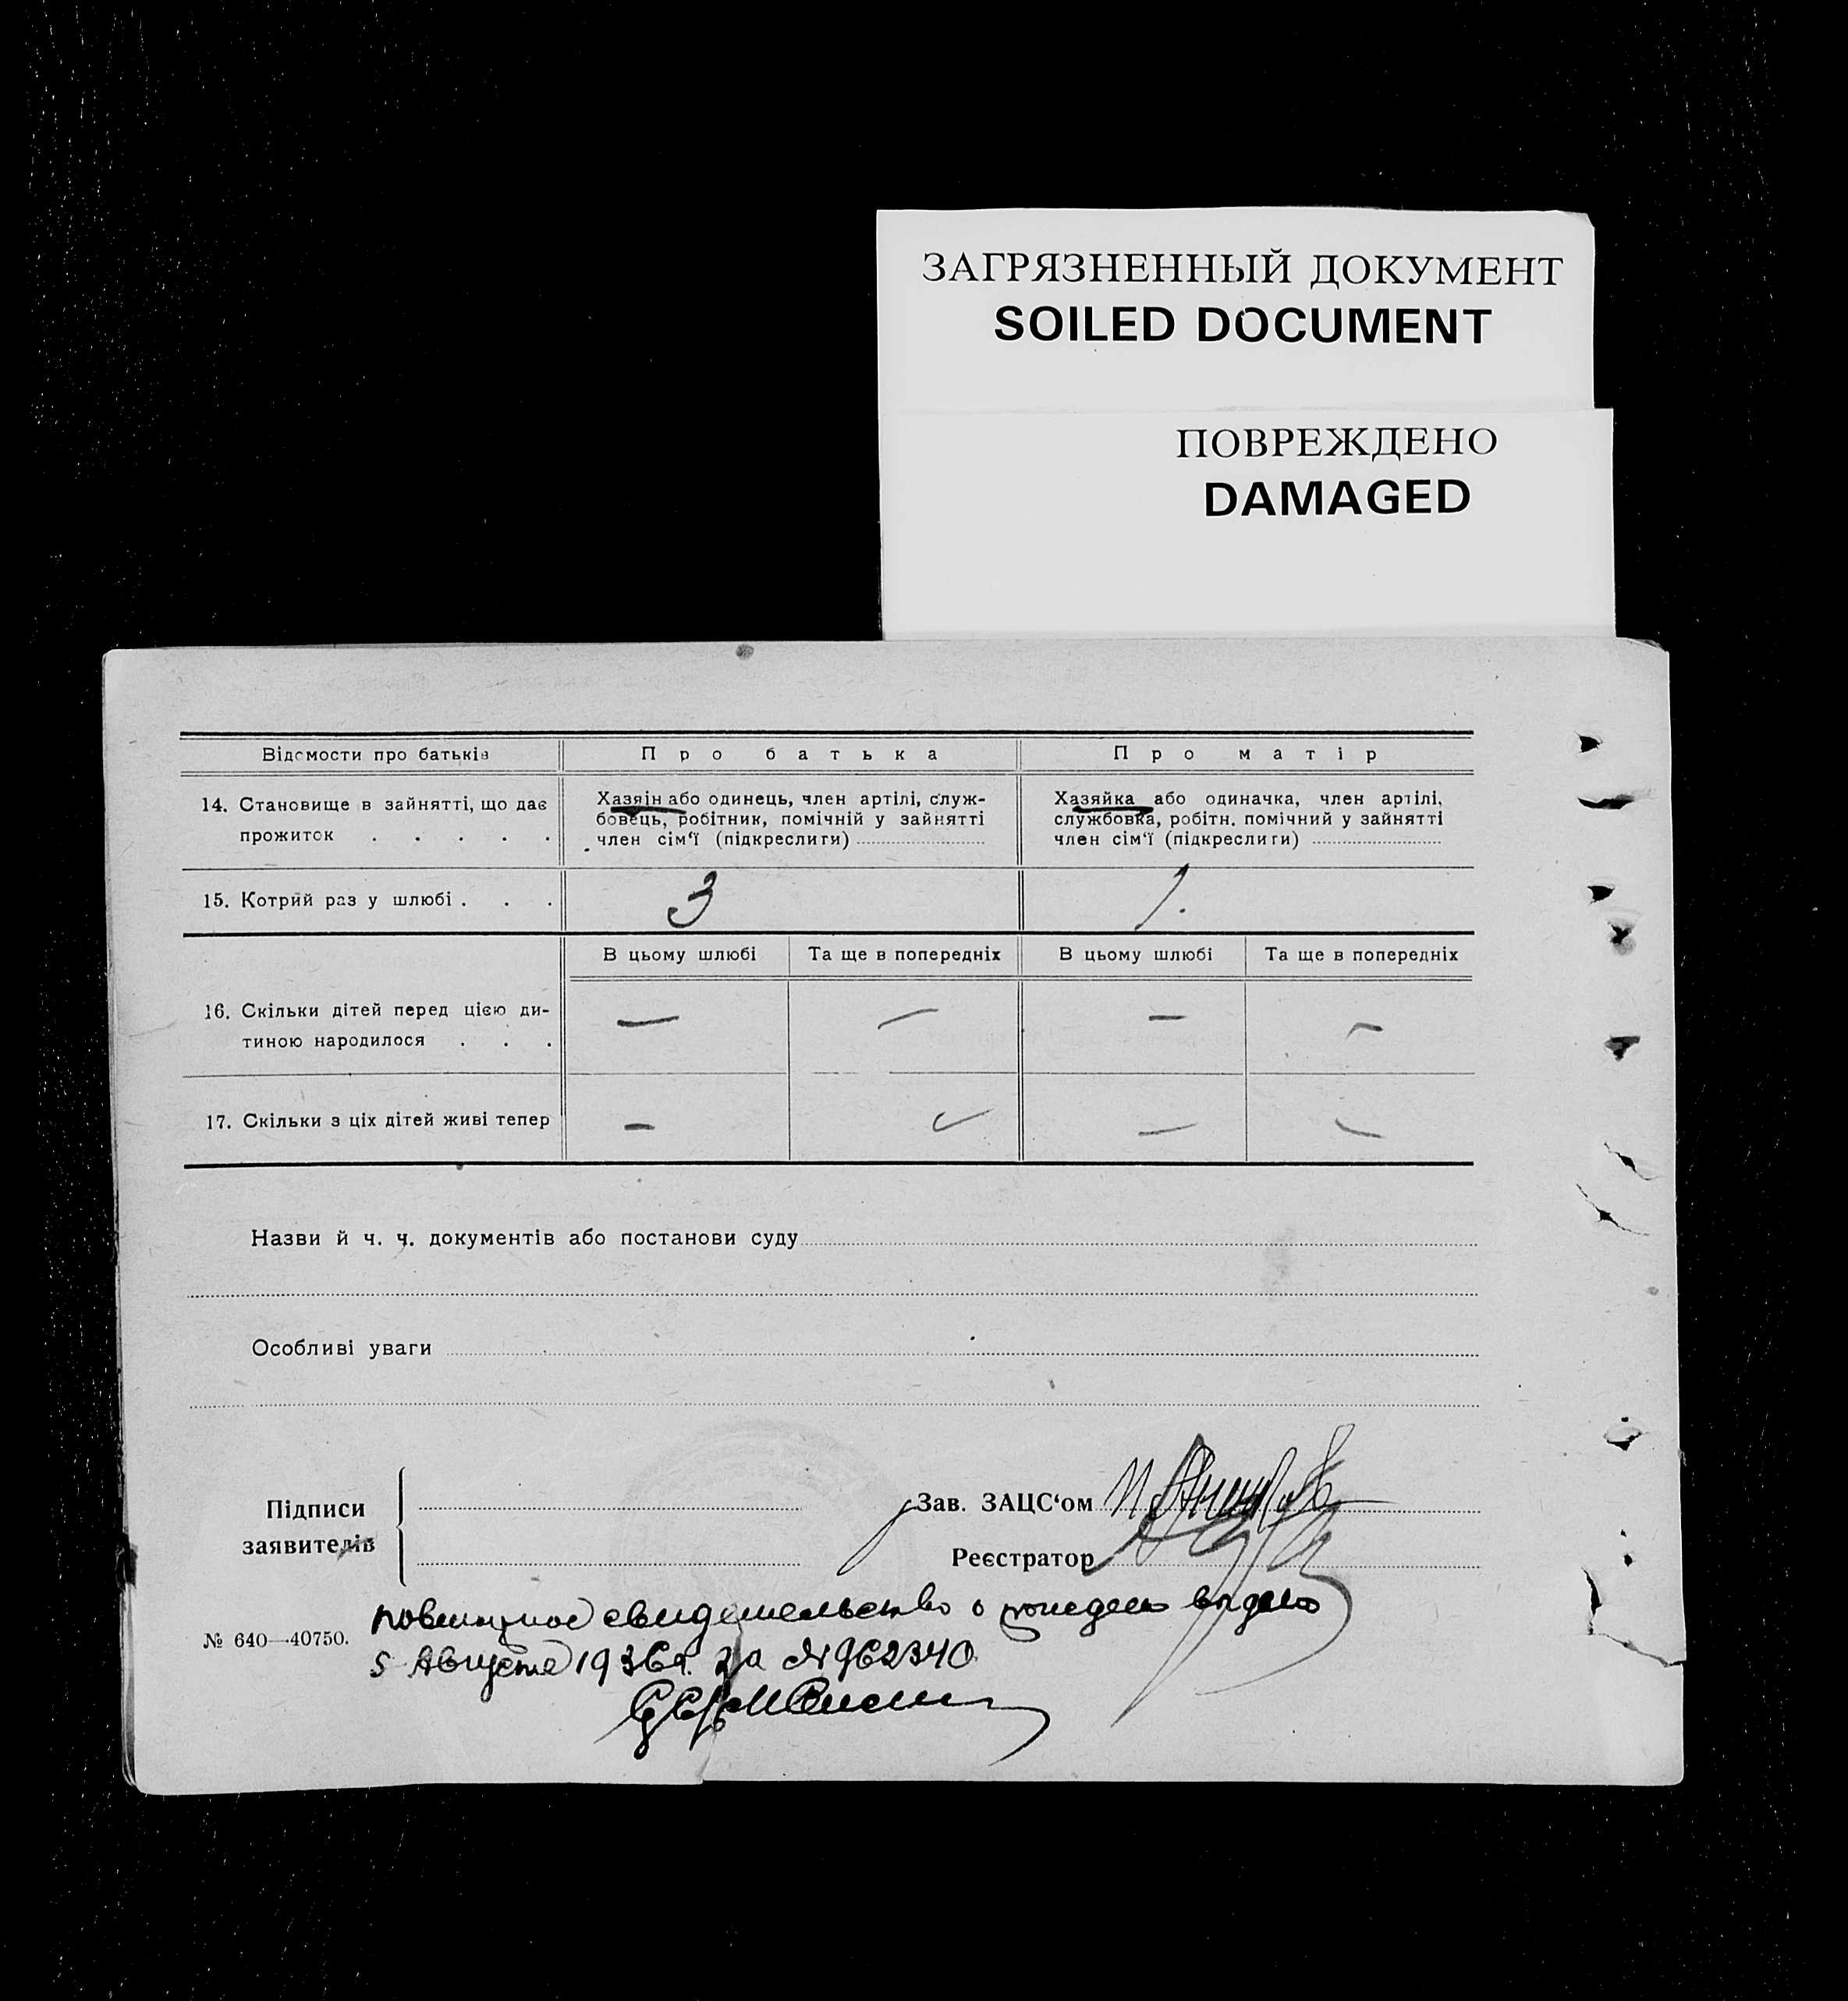 ЗАГРЯЗНЕННЫЙ ДОКУМЕНТ
SOILED DOCUMENT
ПОВРЕЖДЕНО
DAMAGED
Відомости про батьків
Про батька
Про матір
14. Становище в зайнятті, що дає
прожиток . . . . .
Хазяін або одинець, член артілі, служ-
бовець, робітник, помічній у зайнятті
член сім‘ї (підкреслити)
Хазяйка або одиначка, член артілі,
службовка, робітн. помічний у зайнятті
член сім‘ї (підкреслити)
15. Котрий раз у шлюбі . . .
3
1.
В цьому шлюбі
Та ще в попередніх
В цьому шлюбі
Та ще в попередніх
16. Скільки дітей перед цією ди-
тиною народилося . . .
— — — —
17. Скільки з ціх дітей живі тепер
— — — —
Назви й ч. ч. документів або постанови суду
Особливі уваги
Підписи
заявителів
Зав. ЗАЦС‘ом
Реєстратор
№ 640—40750.
повторное свидетельство о выдано
5 Августа 1936г. за № 962340